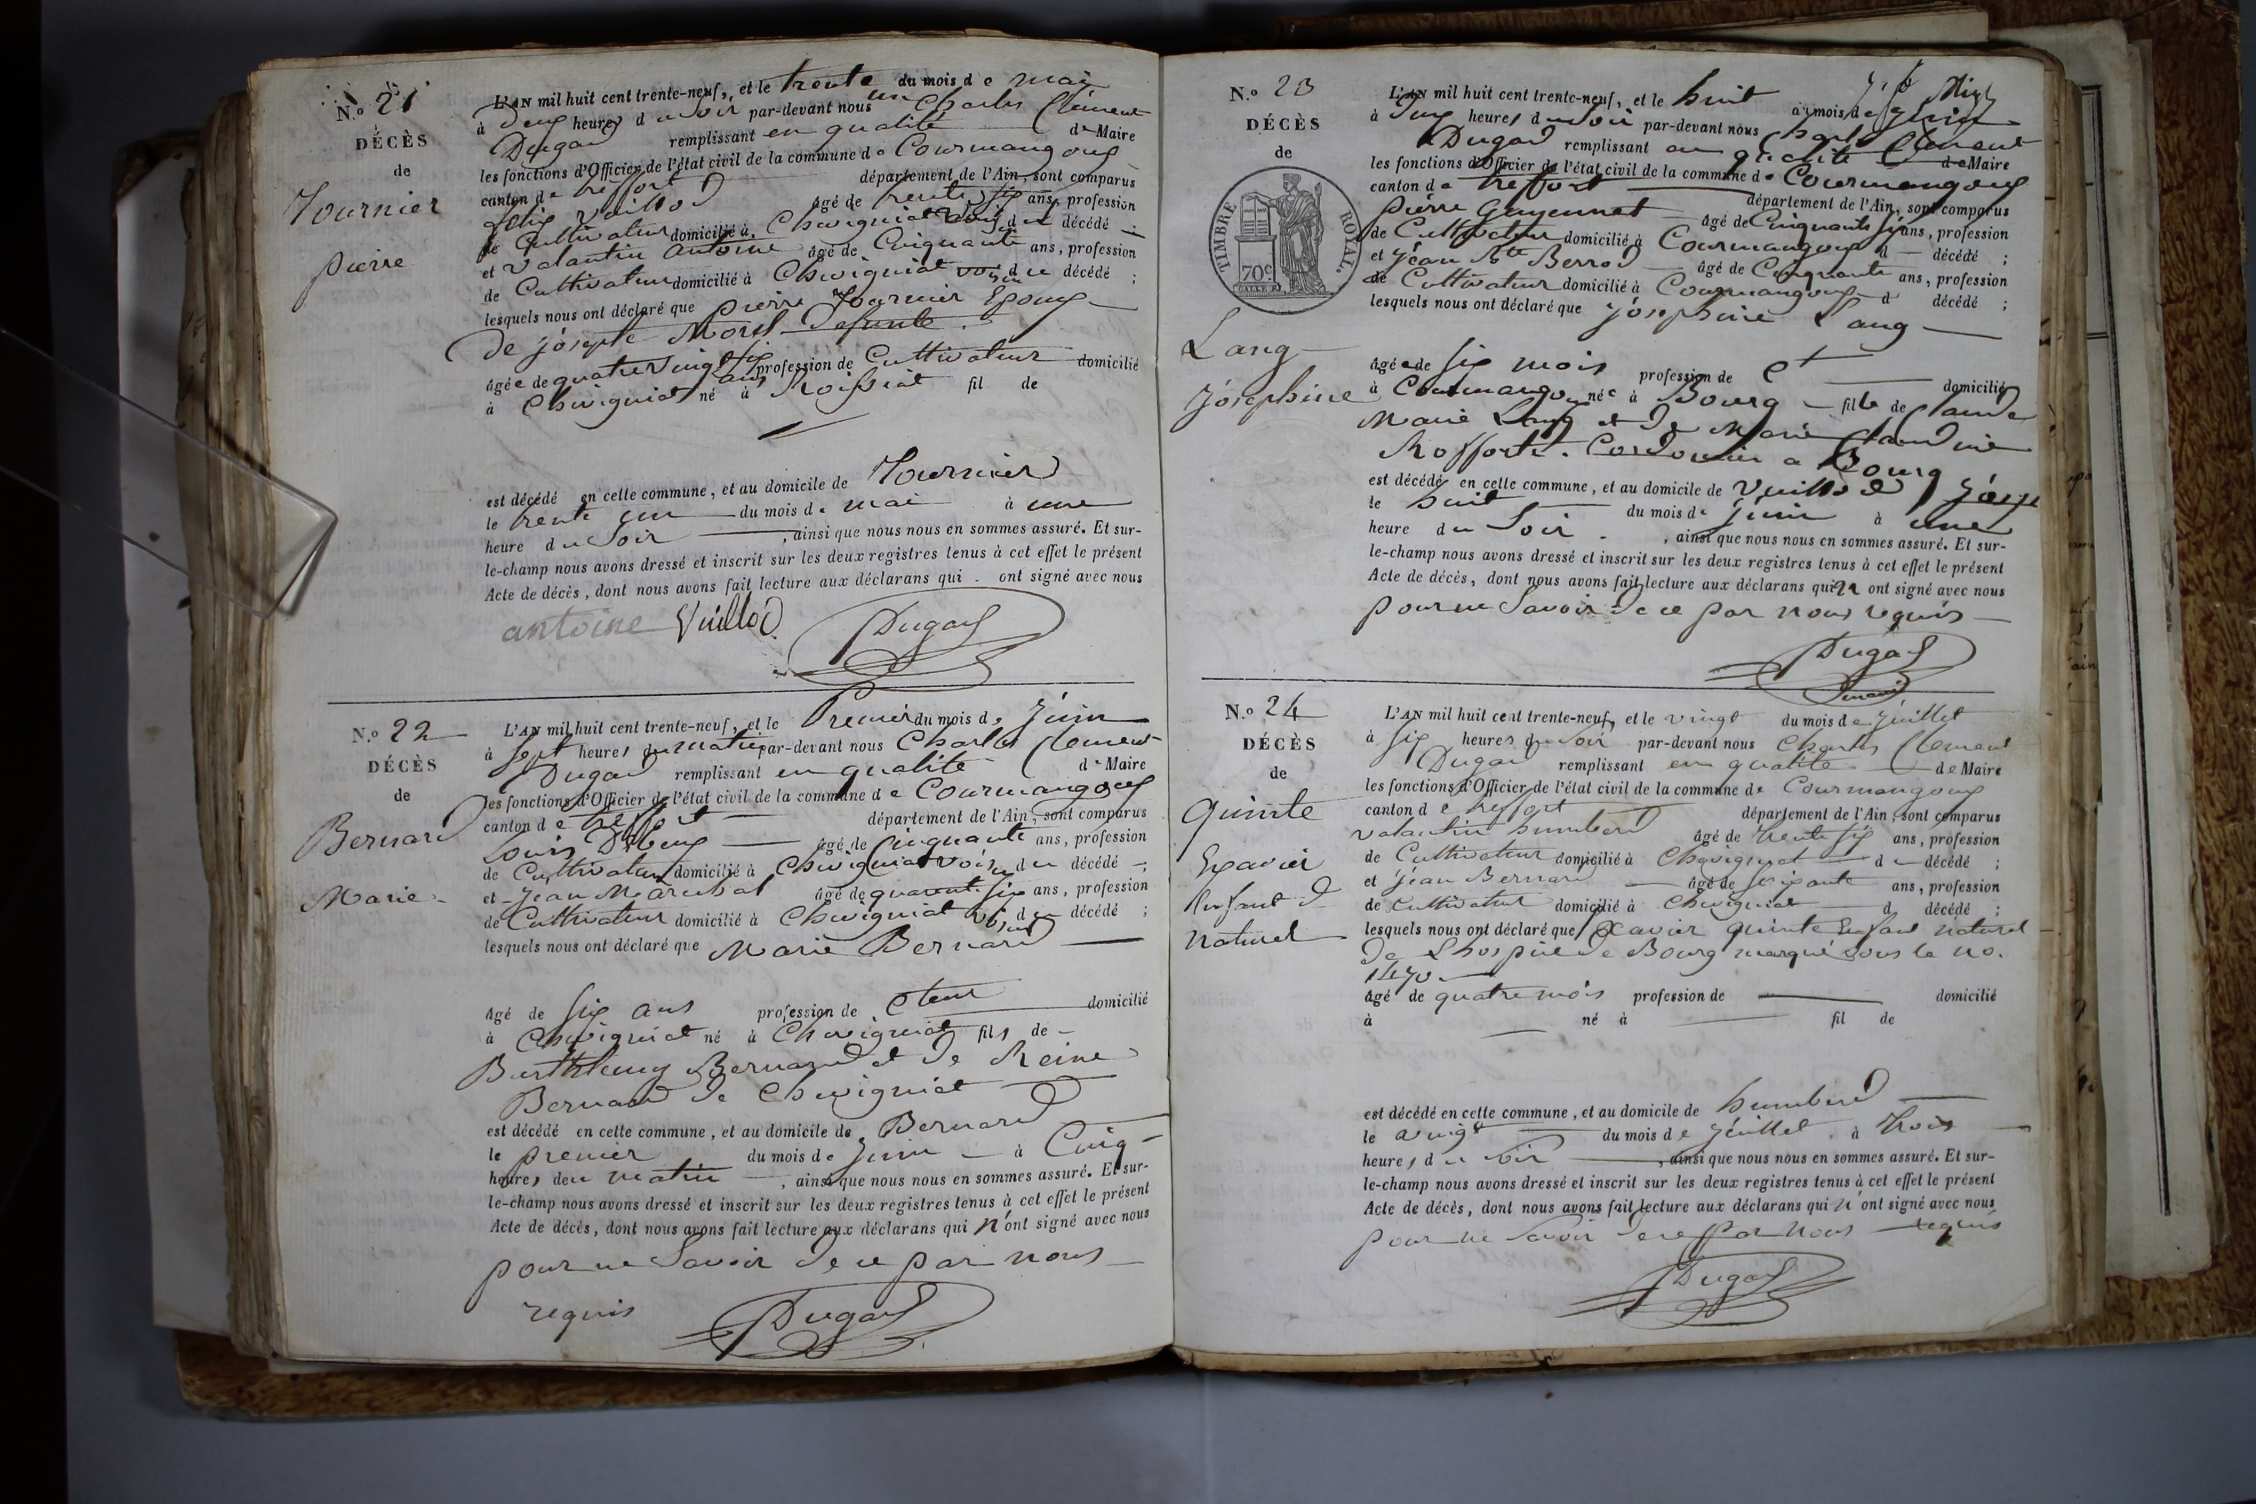 N.o 21
DÉCÈS
de
Tournier
pierre
L'AN mil huit cent trente-neuf, et le trente un du mois de mai
à deux heures du soir par-devant nous Charles Clément
Dugad remplissant en qualité de Maire
les fonctions d'Officier de l'état civil de la commune de Courmangoux
canton de treffort département de l'Ain, sont comparus
felix Vuillod âgé de trente six ans, profession
de Cultivateur domicilié à Chevigniat voisin du décédé ;
et Valantin antoine âgé de Cinquante ans, profession
de Cultivateur domicilié à Chevigniat voisin du décédé ;
lesquels nous ont déclaré que pierre Tournier Epoux
de josepte Morel Defunte
âgé de quatre vingt six ans profession de Cultivateur domicilié
à Chevigniat né à Roissiat fil de
est décédé en cette commune, et au domicile de Tournier
le trente un du mois de mai à une
heure du Soir , ainsi que nous nous en sommes assuré. Et sur-
le-champ nous avons dressé et inscrit sur les deux registres tenus à cet effet le présent
Acte de décès, dont nous avons fait lecture aux déclarans qui ont signé avec nous
antoine Vuillod Dugad
N.o 22
DÉCÈS
de
Bernard
Marie
L'AN mil huit cent trente-neuf, et le Premier du mois de Juin
à Sept heures du matin par-devant nous Charles Clement
Dugad remplissant en qualité de Maire
les fonctions d'Officier de l'état civil de la commune de Courmangoux
canton de treffort département de l'Ain, sont comparus
Louis âgé de Cinquante ans, profession
de Cultivateur domicilié à Chevigniat voisin du décédé ;
et Jean Maréchal âgé de quarante six ans, profession
de Cultivateur domicilié à Chevigniat voisin du décédé ;
lesquels nous ont déclaré que Marie Bernard
âgé de Six ans profession de domicilié
à Chevigniat né à Chevigniat fils de
Barthelemy Bernard et de Reine
Bernard de Chevigniat
est décédé en cette commune, et au domicile de Bernard
le premier du mois de Juin à Cinq
heures du matin , ainsi que nous nous en sommes assuré. Et sur-
le-champ nous avons dressé et inscrit sur les deux registres tenus à cet effet le présent
Acte de décès, dont nous avons fait lecture aux déclarans qui n'ont signé avec nous
pour ne Savoir de ce par nous
requis Dugad
N.o 23
DÉCÈS
de
TIMBRE ROYAL.
70c
Lang
Joséphine
L'AN mil huit cent trente-neuf, et le huit du mois de juin
à Six heures du Soir par-devant nous Charles Clement
Dugad remplissant en qualité de Maire
les fonctions d'Officier de l'état civil de la commune de Courmangoux
canton de treffort département de l'Ain, sont comparus
pierre Guyennet âgé de Cinquante six ans, profession
de Cultivateur domicilié à Courmangoux d décédé ;
et jean Bte Berrod âgé de Cinquante ans, profession
de Cultivateur domicilié à Courmangoux d décédé ;
lesquels nous ont déclaré que joséphine Lang
âgée de six mois profession de domicilié
à Courmangoux née à Bourg fille de Claude
Marie Lang et de Marie Claudine
Cordonnier a Bourg
est décédé en cette commune, et au domicile de Vuillod
le huit du mois de juin à une
heure du Soir , ainsi que nous nous en sommes assuré. Et sur-
le-champ nous avons dressé et inscrit sur les deux registres tenus à cet effet le présent
Acte de décès, dont nous avons fait lecture aux déclarans qui n ont signé avec nous
pour ne Savoir de ce par nous requis
Dugad
N.o 24
DÉCÈS
de
quinte
Exavier
Enfant
naturel
L'AN mil huit cent trente-neuf, et le vingt du mois de Juillet
à Six heures du Soir par-devant nous Charles Clement
Dugad remplissant en qualité de Maire
les fonctions d'Officier de l'état civil de la commune de Courmangoux
canton de treffort département de l'Ain, sont comparus
Valantin humberd âgé de trente six ans, profession
de Cultivateur domicilié à Chevigniat d décédé ;
et jean Bernard âgé de soixante ans, profession
de Cultivateur domicilié à Chevigniat d décédé ;
lesquels nous ont déclaré que Exavier quinte Enfant naturel
De Lhospice de Bourg marqué Sous le no.
1470
âgé de quatre mois profession de domicilié
à né à fil de
est décédé en cette commune, et au domicile de humberd
le vingt du mois de Juillet à trois
heures du soir , ainsi que nous nous en sommes assuré. Et sur-
le-champ nous avons dressé et inscrit sur les deux registres tenus à cet effet le présent
Acte de décès, dont nous avons fait lecture aux déclarans qui n'ont signé avec nous
pour ne Savoir de ce par nous requis
Dugad